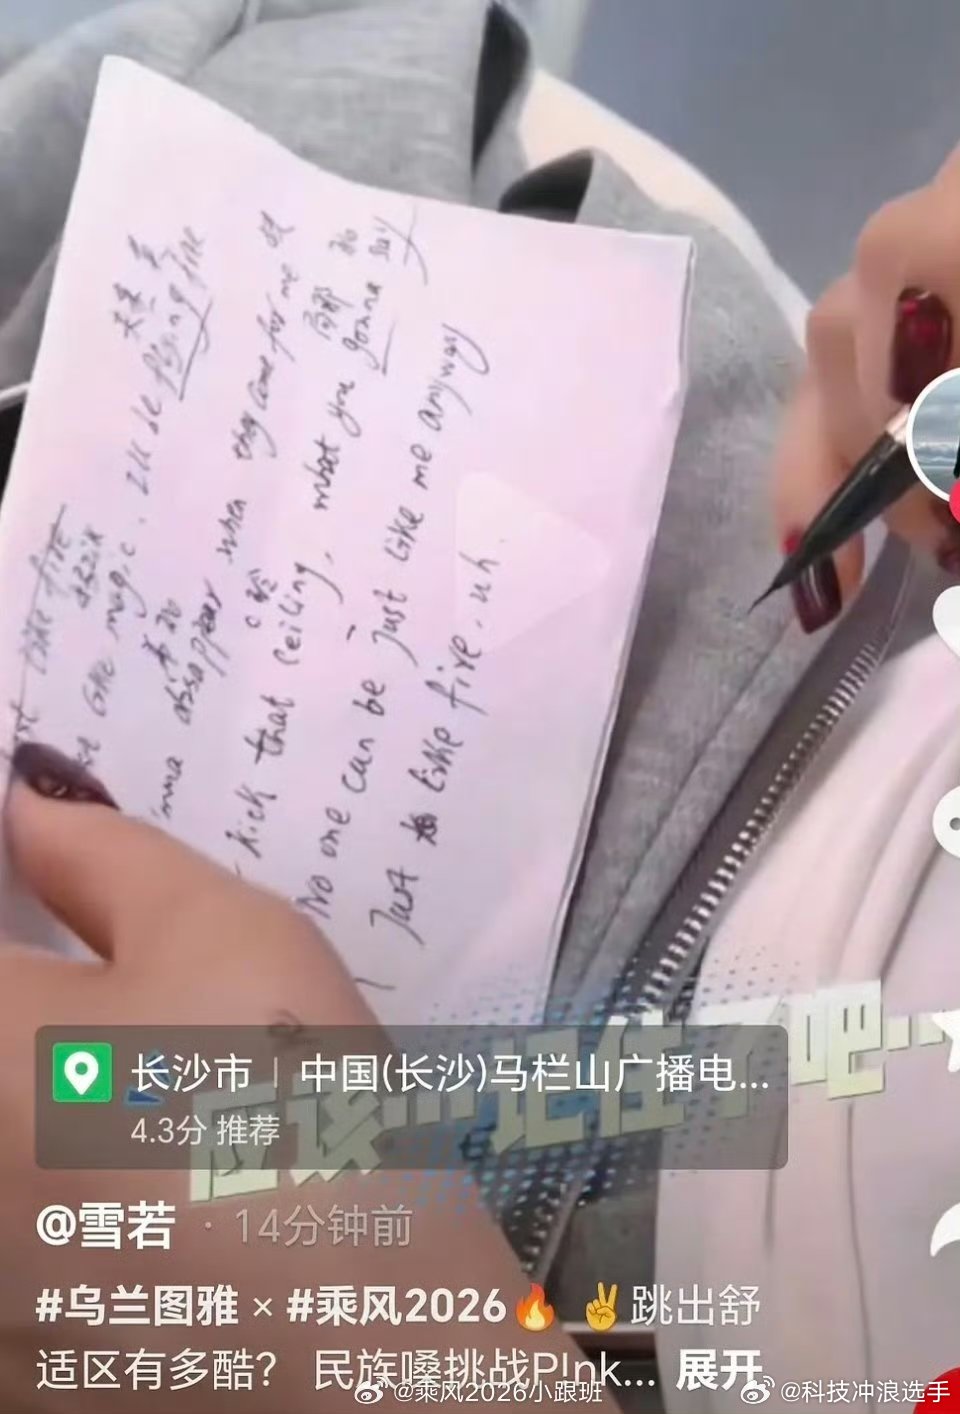 like fire
like magic. I'll be flying free
'mma disappear when they come for me
kick that ceiling, what you gonna say
No one can be just like me anyway
Just like fire, uh.
应该……记住了吧……
长沙市 | 中国(长沙)马栏山广播电...
4.3分 推荐
@雪若 · 14分钟前
#乌兰图雅 × #乘风2026🔥 ✌️跳出舒
适区有多酷? 民族嗓挑战P!nk... 展开
@乘风2026小跟班
@科技冲浪选手